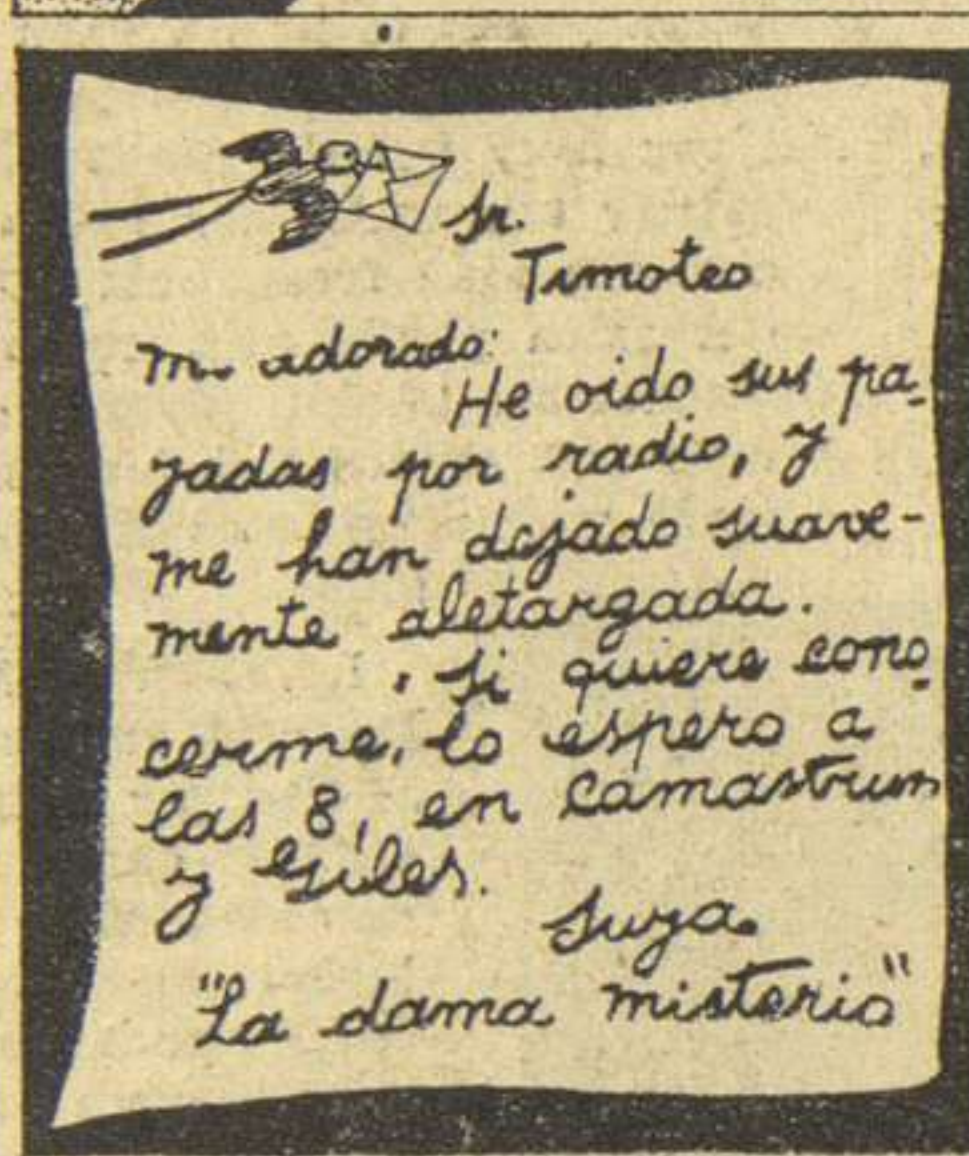 Sr.
Timoteo
Mi adorado:
He oido sus pa-
yadas por radio, y
me han dejado suave-
mente aletargada.
Si quiere cono-
cerme, lo espero a
las 8, en Camastrum
y
Suya.
"La dama misterio"